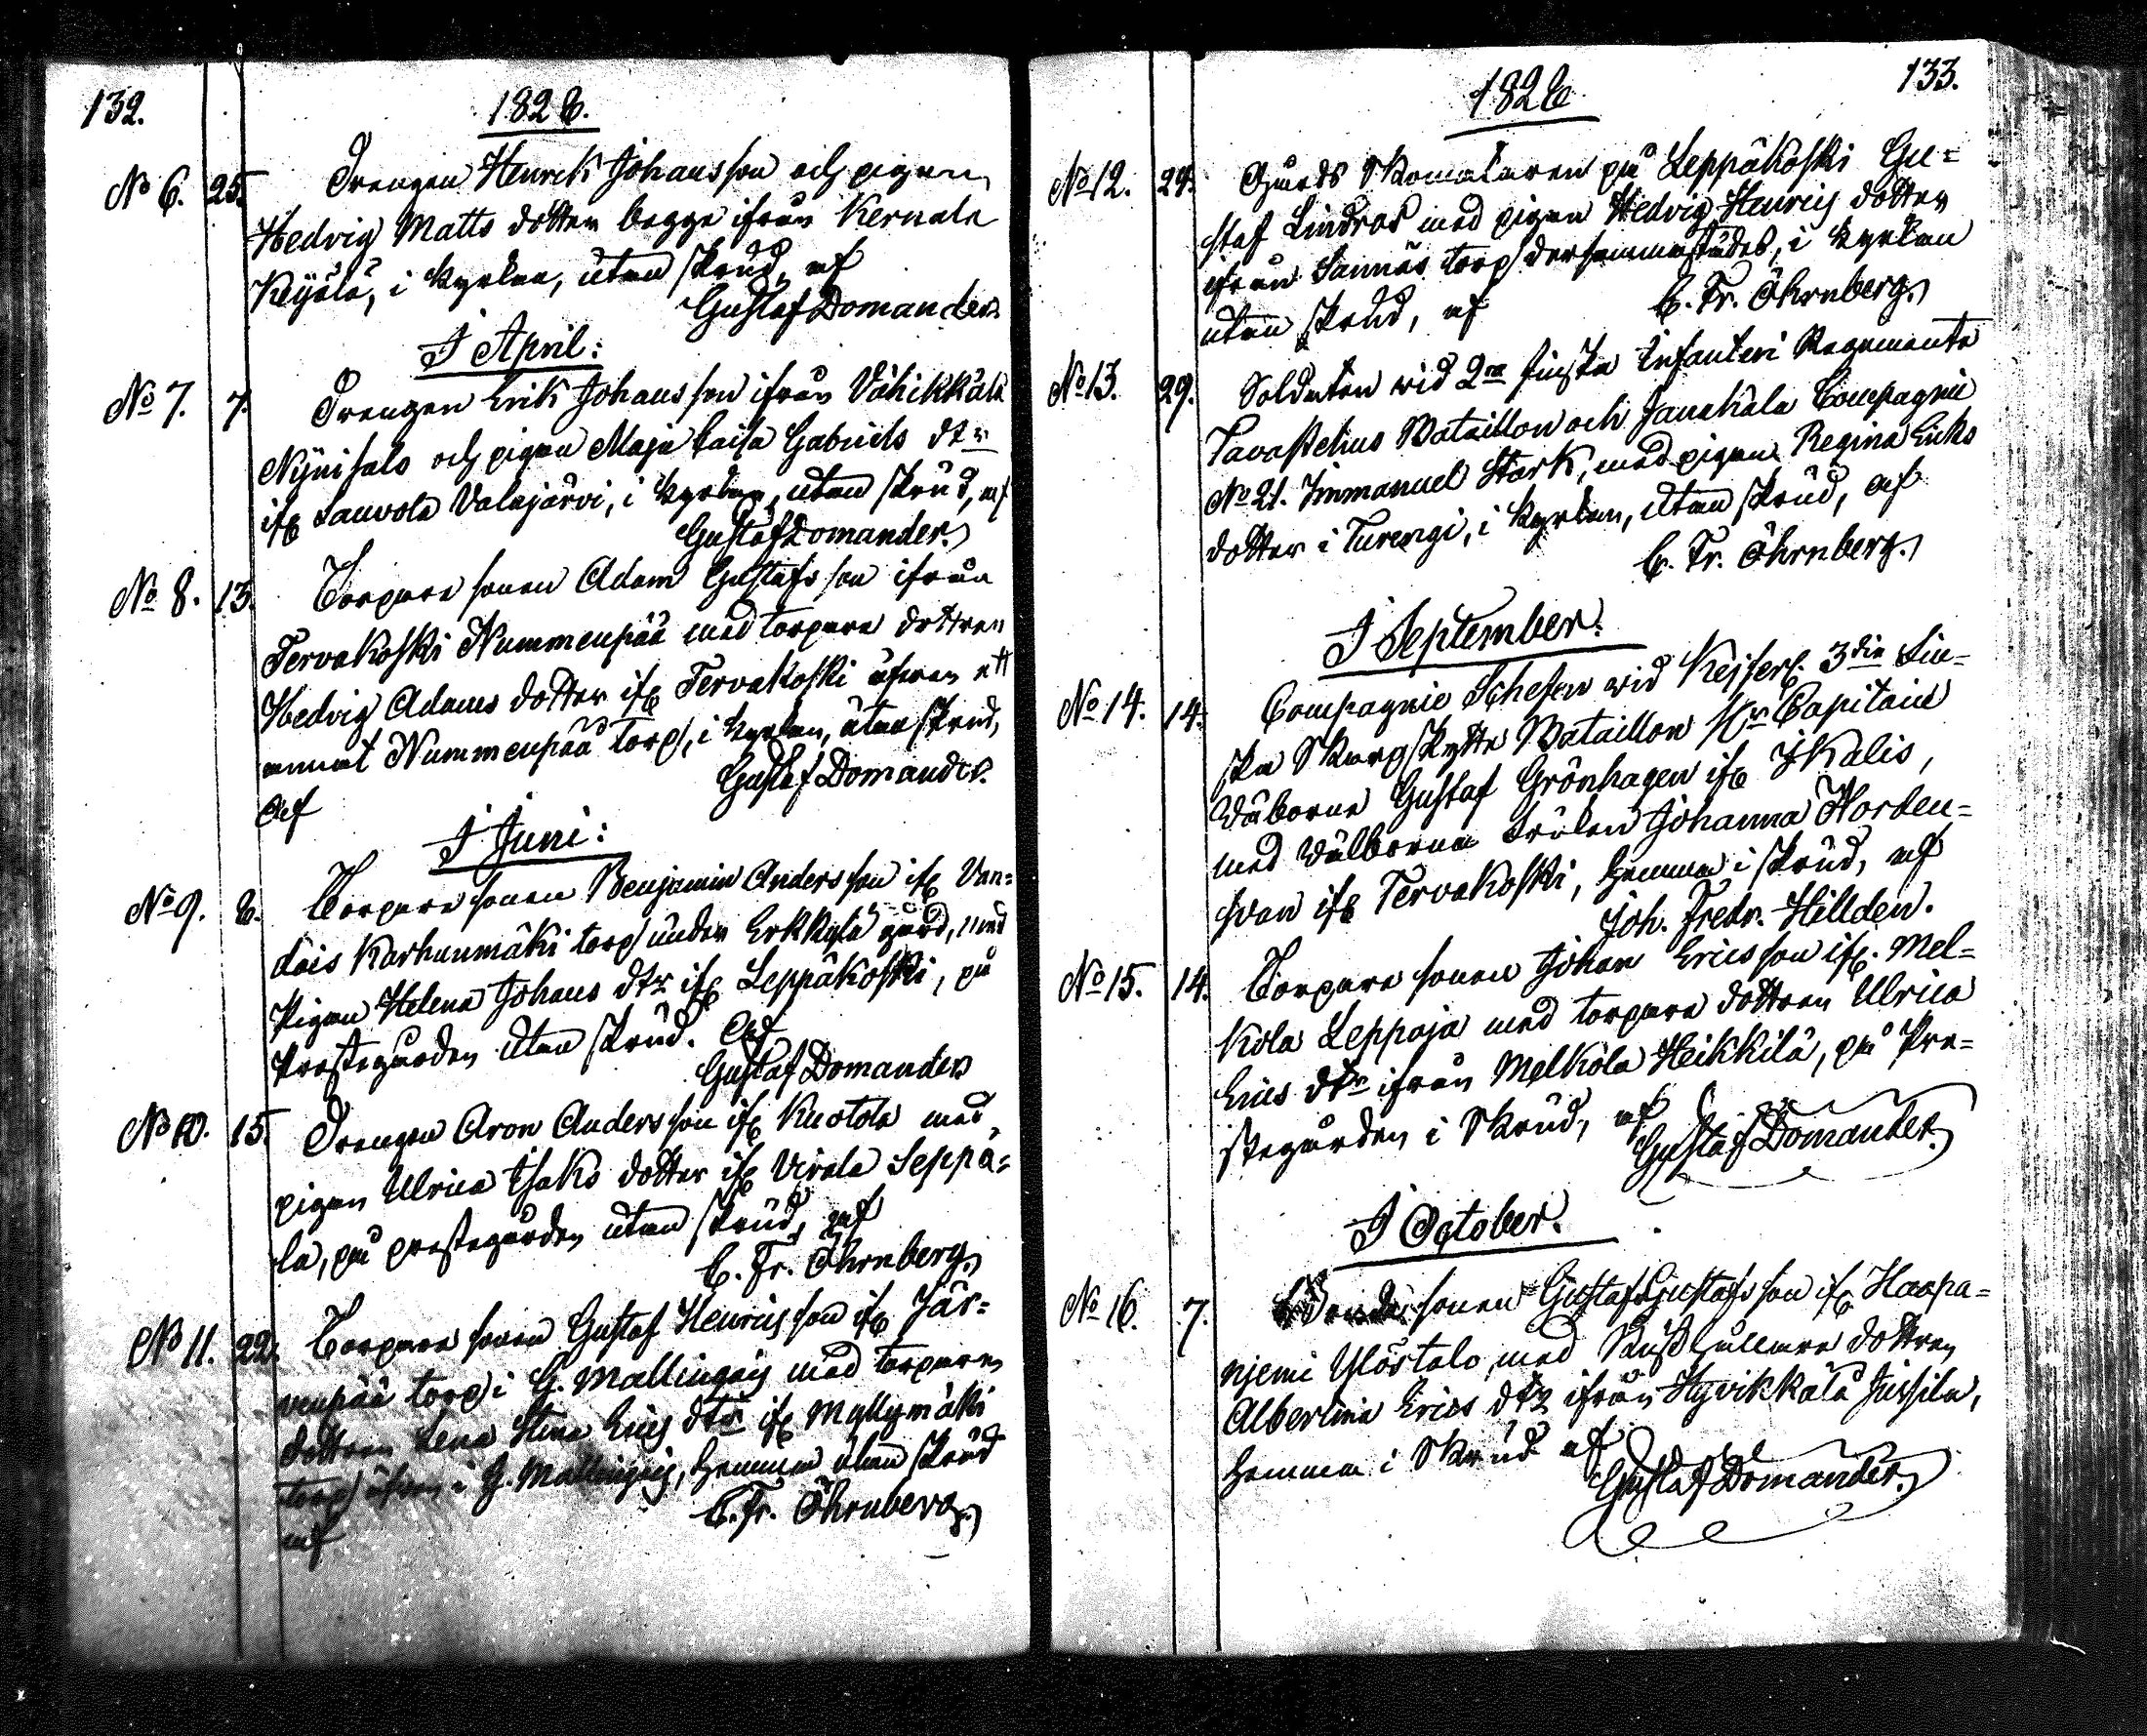 132.
1826.
No 6. 25. Drengen Henrik Johansson och pigan
Hedvig Matts dotter begge ifrån Kernala
Keijälä, i kyrkan, utan skrud, af
Gustaf Domander.
I April:
No 7. 7. Drengen Erik Johansson ifrån Vähikkälä
Nijnisalo och pigan Maja Caisa Gabriels dtr
ifr Sauvola Valajärvi, i kyrkan, utan skrud, af
Gustaf Domander.
No 8. 13. Torpare sonen Adam Gustafsson ifrån
Tervakoski Nummenpää med torpare dottren
Hedvig Adams dotter ifr Tervakoski äfven ett
annat Nummenpää torp, i kyrkan, utan skrud,
af Gustaf Domander.
I Juni:
No 9. 6. Torpare sonen Benjamin Andersson ifr Van=
dois Karhunmäki torp under Erkkylä gård, med
Pigan Helena Johans dtr ifr Leppäkoski, på
Prestegården utan skrud. Af
Gustaf Domander
No 10. 15. Drengen Aron Andersson ifr Kuotola med
pigan Ulrica Isaks dotter ifr Virala Seppä=
lä, på prestegården utan skrud, af
C. Fr. Öhrnberg.
No 11. 22. Torpare sonen Gustaf Henricsson ifr Jär=
venpää torp i G. Mallingais med torpare
dottren Lena Stina Erics dtr ifr Myllymäki
torp äfven i G. Mallingais, hemma utan skrud
af C. Fr. Öhrnberg.
133.
1826
No 12. 24. Gårds Skomakaren på Leppäkoski Gu=
staf Lindros med pigan Hedvig Henrics dotter
ifrån Sannäs torp dersammastädes, i kyrkan
utan skrud, af C. Fr. Öhrnberg.
No 13. 29. Soldaten vid 2ra finska Infanteri Regemente
Tavastehus Bataillon och Janakala Compagnie
No 21. Immanuel Stark, med pigan Regina Eriks
dotter i Turengi, i kyrkan, utan skrud, af
C. Fr. Öhrnberg.
I September.
No 14. 14. Compagnie Schefen vid Kejserl. 3die Fin=
ska Skarpskytte Bataillon Hr Capitaine
Wälborne Gustaf Grönhagen ifr Ikalis,
med Wälborna Fröken Johanna Norden=
svan ifr Tervakoski, hemma i skrud, af
Joh. Fredr. Hillden.
No 15. 14. Torpare sonen Johan Ericsson ifr. Mel=
kola Leppoja med torpare dottren Ulrica
Erics dtr ifrån Melkola Heikkilä, på Pre=
stegården i Skrud, af
Gustaf Domander.
I October.
No 16. 7. Bonde sonen Gustaf Gustafsson ifr Haapa=
njemi Ylöstalo med Rusthållare dottren
Albertina Erics dtr ifrån Hyvikkälä Jussila,
hemma i Skrud af
Gustaf Domander.